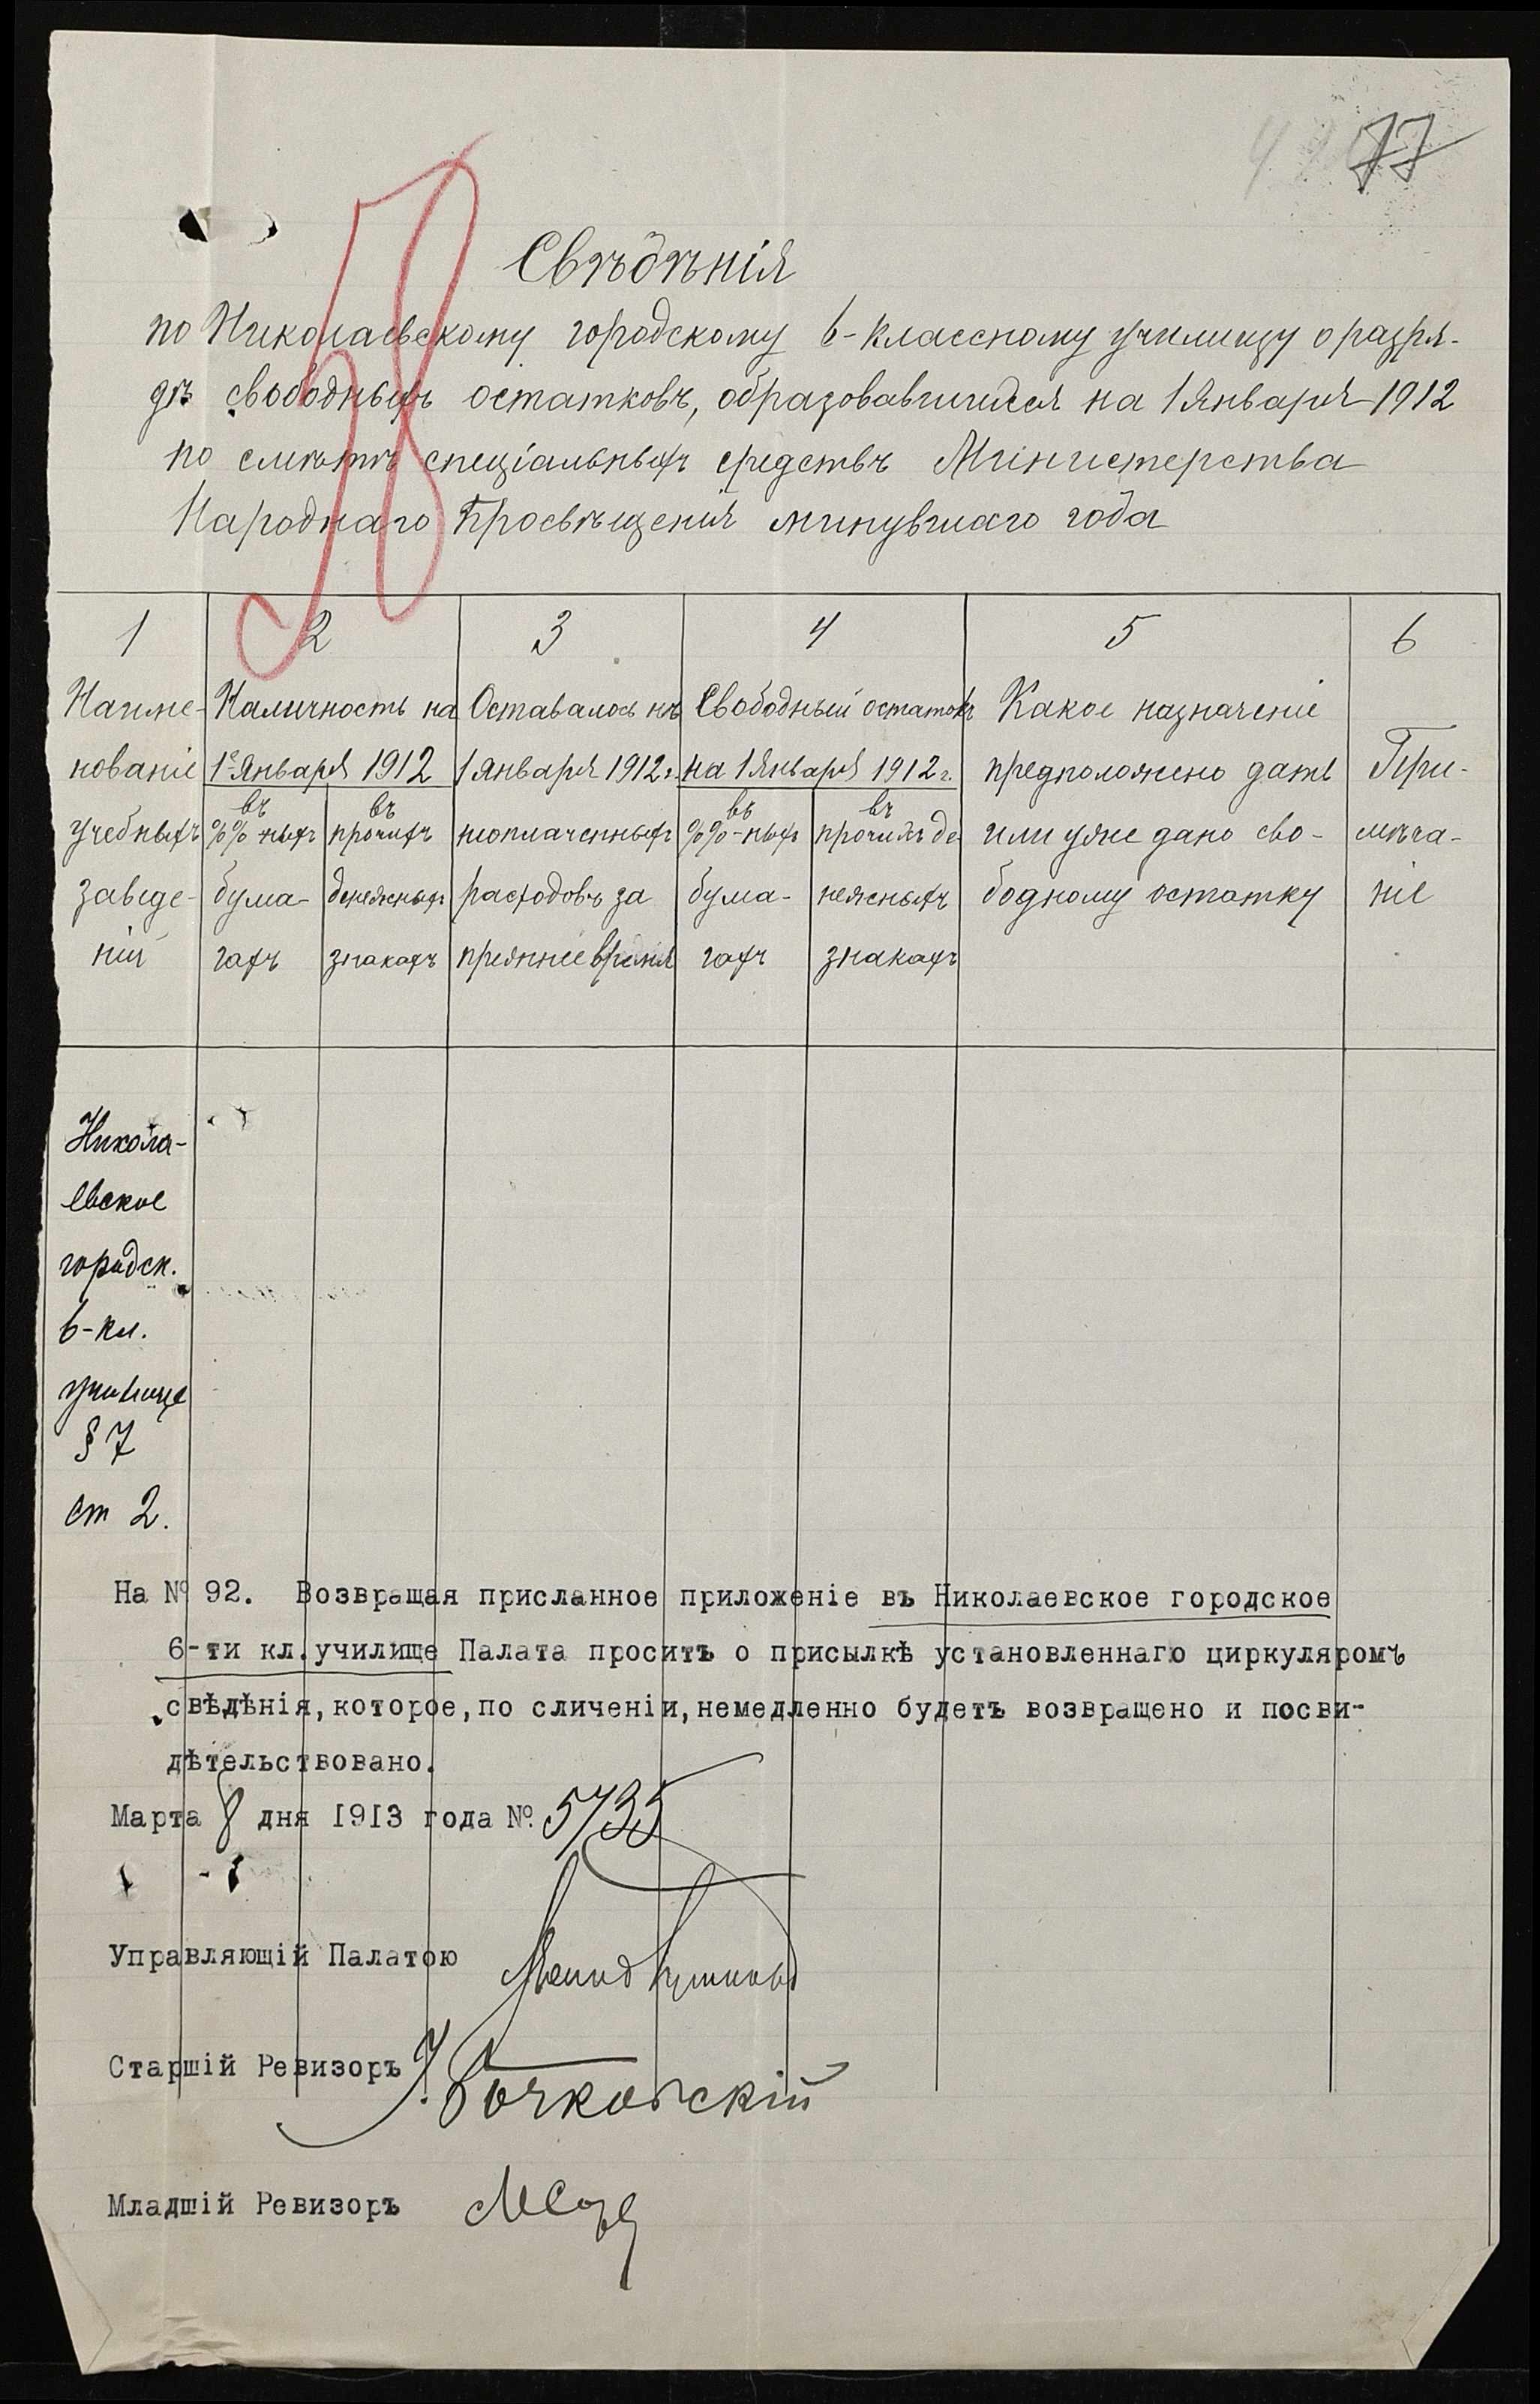 77
58
Свѣдѣнія
по Николаевскому городскому 6-классному училищу о разря-
дѣ свободныхъ остатковъ, образовавшихся на 1 Января 1912
по смѣтѣ спеціальныхъ средствъ Министерства
Народнаго Просвѣщенія минувшаго года
1 2 3 4 5 6
Наиме-
нованіе
учебныхъ
заведе-
ній
Наличность на
1е Января 1912
въ
%%-ныхъ
бума-
гахъ
въ
прочихъ
денежныхъ
знакахъ
Оставалось къ
1 Января 1912 г.
неоплаченныхъ
расходовъ за
прежнее время
Свободный остатокъ
на 1 Января 1912 г.
въ
%%-ныхъ
бума-
гахъ
въ
прочихъ де-
нежныхъ
знакахъ
Какое назначеніе
предположено дать
или уже дано сво-
бодному остатку
При-
мѣча-
ніе
Никола-
евское
городск.
6-кл.
училище
§ 7
ст 2.
На № 92. Возвращая присланное приложеніе въ Николаевское городское
6-ти кл.училище Палата проситъ о присылкѣ установленнаго циркуляромъ
свѣдѣнія,которое,по сличеніи,немедленно будетъ возвращено и посви-
дѣтельствовано.
Марта 8 дня 1913 года № 5735
Управляющій Палатою
Старшій Ревизоръ Бочковскій
Младшій Ревизоръ